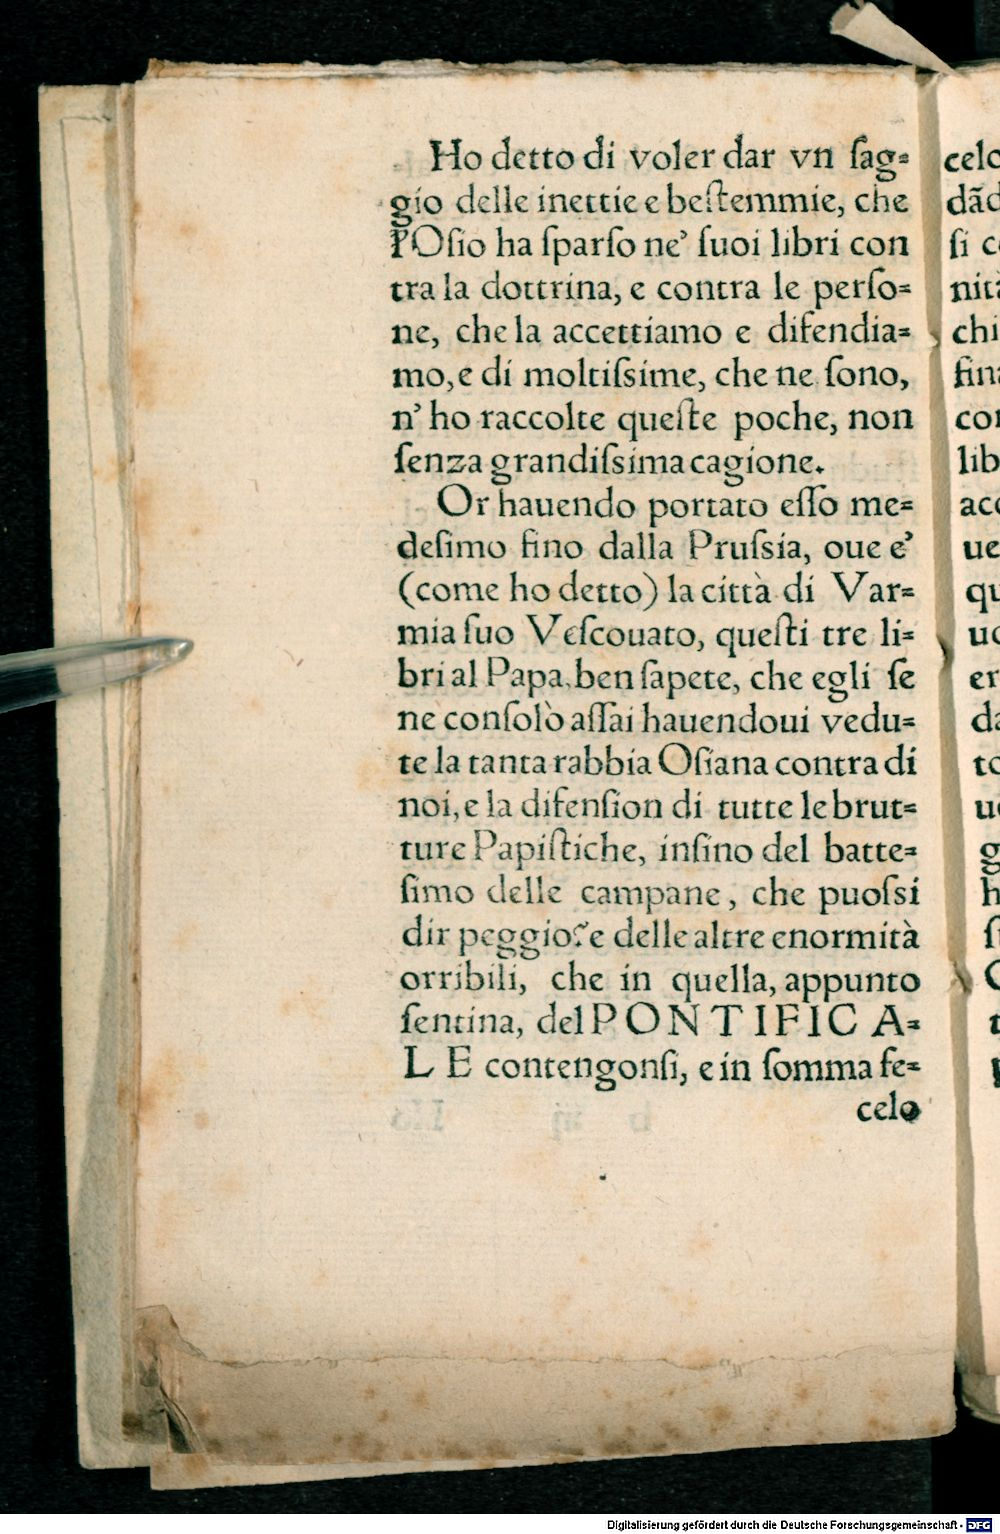 Ho detto di voler dar vn ſag⸗
gio delle inettie e beſtemmie, che
l'Oſio ha ſparſo ne' ſuoi libri con
tra la dottrina, e contra le perſo⸗
ne, che la accettiamo e difendia⸗
mo, e di moltiſsime, che ne ſono,
n' ho raccolte queſte poche, non
ſenza grandiſsima cagione.
Or hauendo portato eſſo me⸗
deſimo fino dalla Pruſsia, oue e'
(come ho detto) la città di Var⸗
mia ſuo Veſcouato, queſti tre li⸗
bri al Papa, ben ſapete, che egli ſe
ne conſolò aſſai hauendoui vedu⸗
te la tanta rabbia Oſiana contra di
noi, e la difenſion di tutte le brut⸗
ture Papiſtiche, inſino del batte⸗
ſimo delle campane, che puoſsi
dir peggio? e delle altre enormità
orribili, che in quella, appunto
ſentina, del PONTIFICA⸗
LE contengonſi, e in ſomma fe⸗
celo
celo
dãd
ſi c
nità
chi
fin
con
lib
acc
ue
qu
uo
er
da
to
u
g
h
ſt
Digitalisierung gefördert durch die Deutsche Forschungsgemeinschaft - DFG